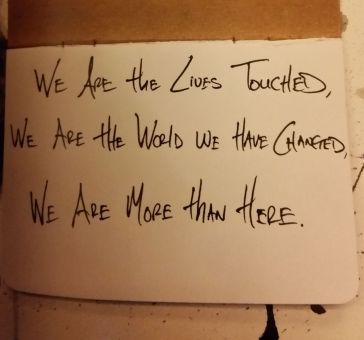 We Are the Lives Touched,
We Are the World we Have Changed,
We Are More than Here.